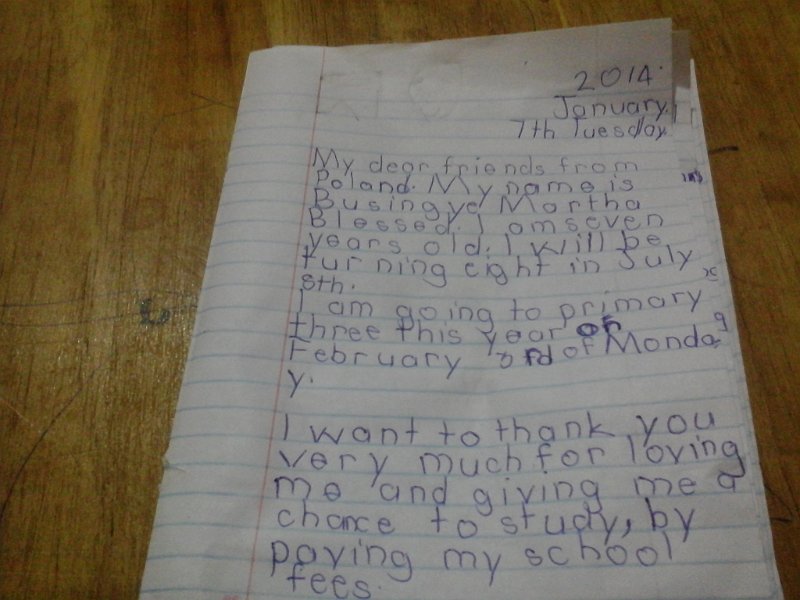 2014.
January.
7th Tuesday
My dear friends from
Poland. My name is
Businguye Martha
Blessed. I am seven
years old. I will be
turning eight in July
8th.
I am going to primary
three this year on
February 3rd of Monda
y.
I want to thank you
very much for loving
me and giving me a
chance to study, by
paying my school
fees.